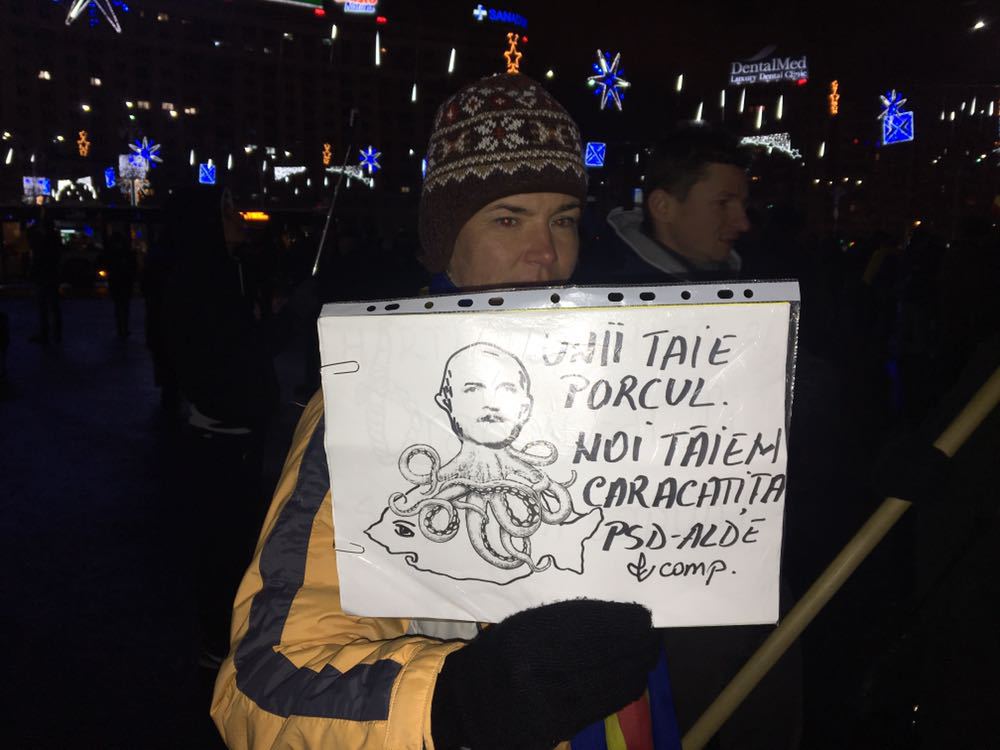 SANADOR
DentalMed
Luxury Dental Clinic
UNII TAIE
PORCUL.
NOI TĂIEM
CARACATIȚA
PSD-ALDE
& comp.